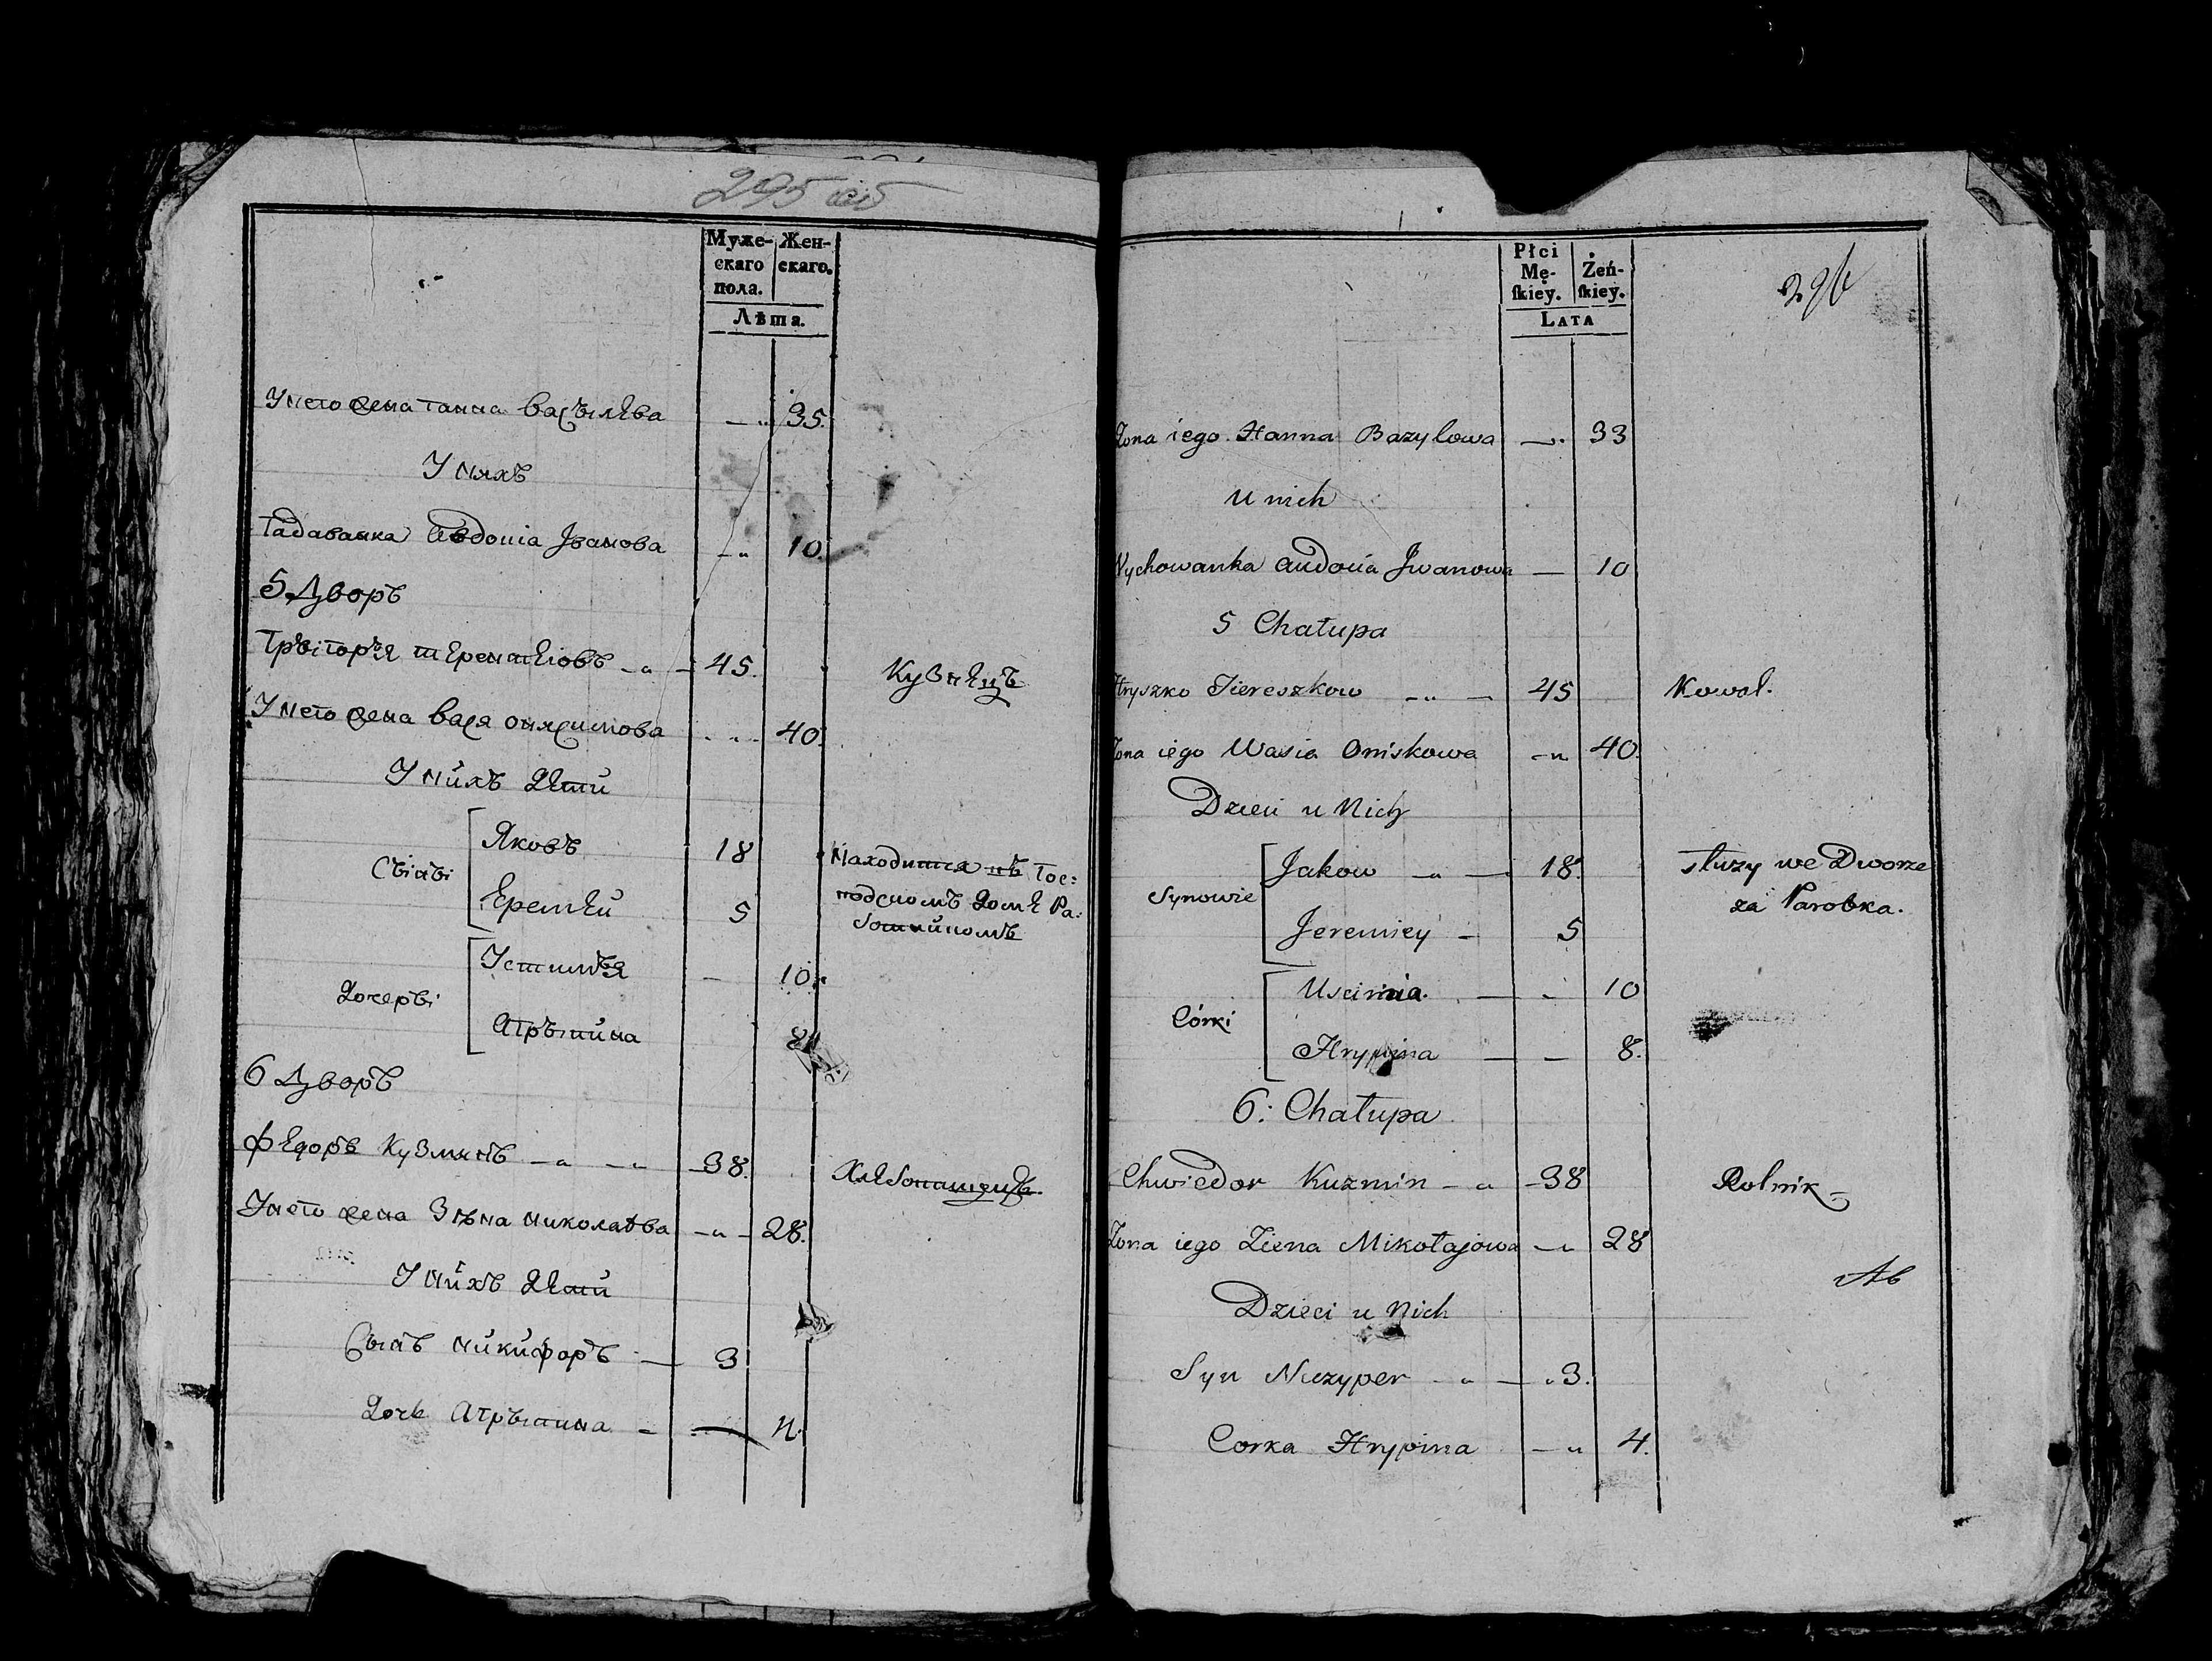 295 об
Муже-
скаго
пола.
Жен-
скаго.
Лѣта.
У него жена ганна васъилева 35.
У няхъ
Гадаванка Авдоцiа Јванова 10.
5 Дворъ
Грыгоръя терешкiовъ 45. Кузнецъ
У него жена вася онясимова 40.
У нихъ дети
Съiнъi
Яковъ 18 Находится въ Гос:
Еремей 5 подскомъ доме Ра:
ботникомъ
Дочеръi
Устимъя 10
Агръпина 8
6 Дворъ
Федоръ Кузминъ 38. Хлебопашецъ.
У него жена Зѣна николаѣва 28.
У нихъ дети
Сынъ никифоръ 3
Дочь Агръпина 4.
Płci
Mę-
ſkiey.
Żeń-
ſkiey.
LATA
296
Żona iego Hanna Bazylowa 33
U nich
Wychowanka Audocia Jwanowa 10
5 Chałupa
Hryszko Tiereszkow 45 Kowal.
Żona iego Wasia Oniskowa 40.
Dzieci u Nich
Synowie
Jakow 18. służy we Dworze
za Parobka.
Jeremiey 5
Córki
Uscimia 10
Hrypina 8.
6: Chałupa
Chwiedor Kuzmin 38 Rolnik
Żona iego Ziena Mikołajowa 28
Dzieci u Nich
Syn Niczyper 3.
Corka Hrypina 4.